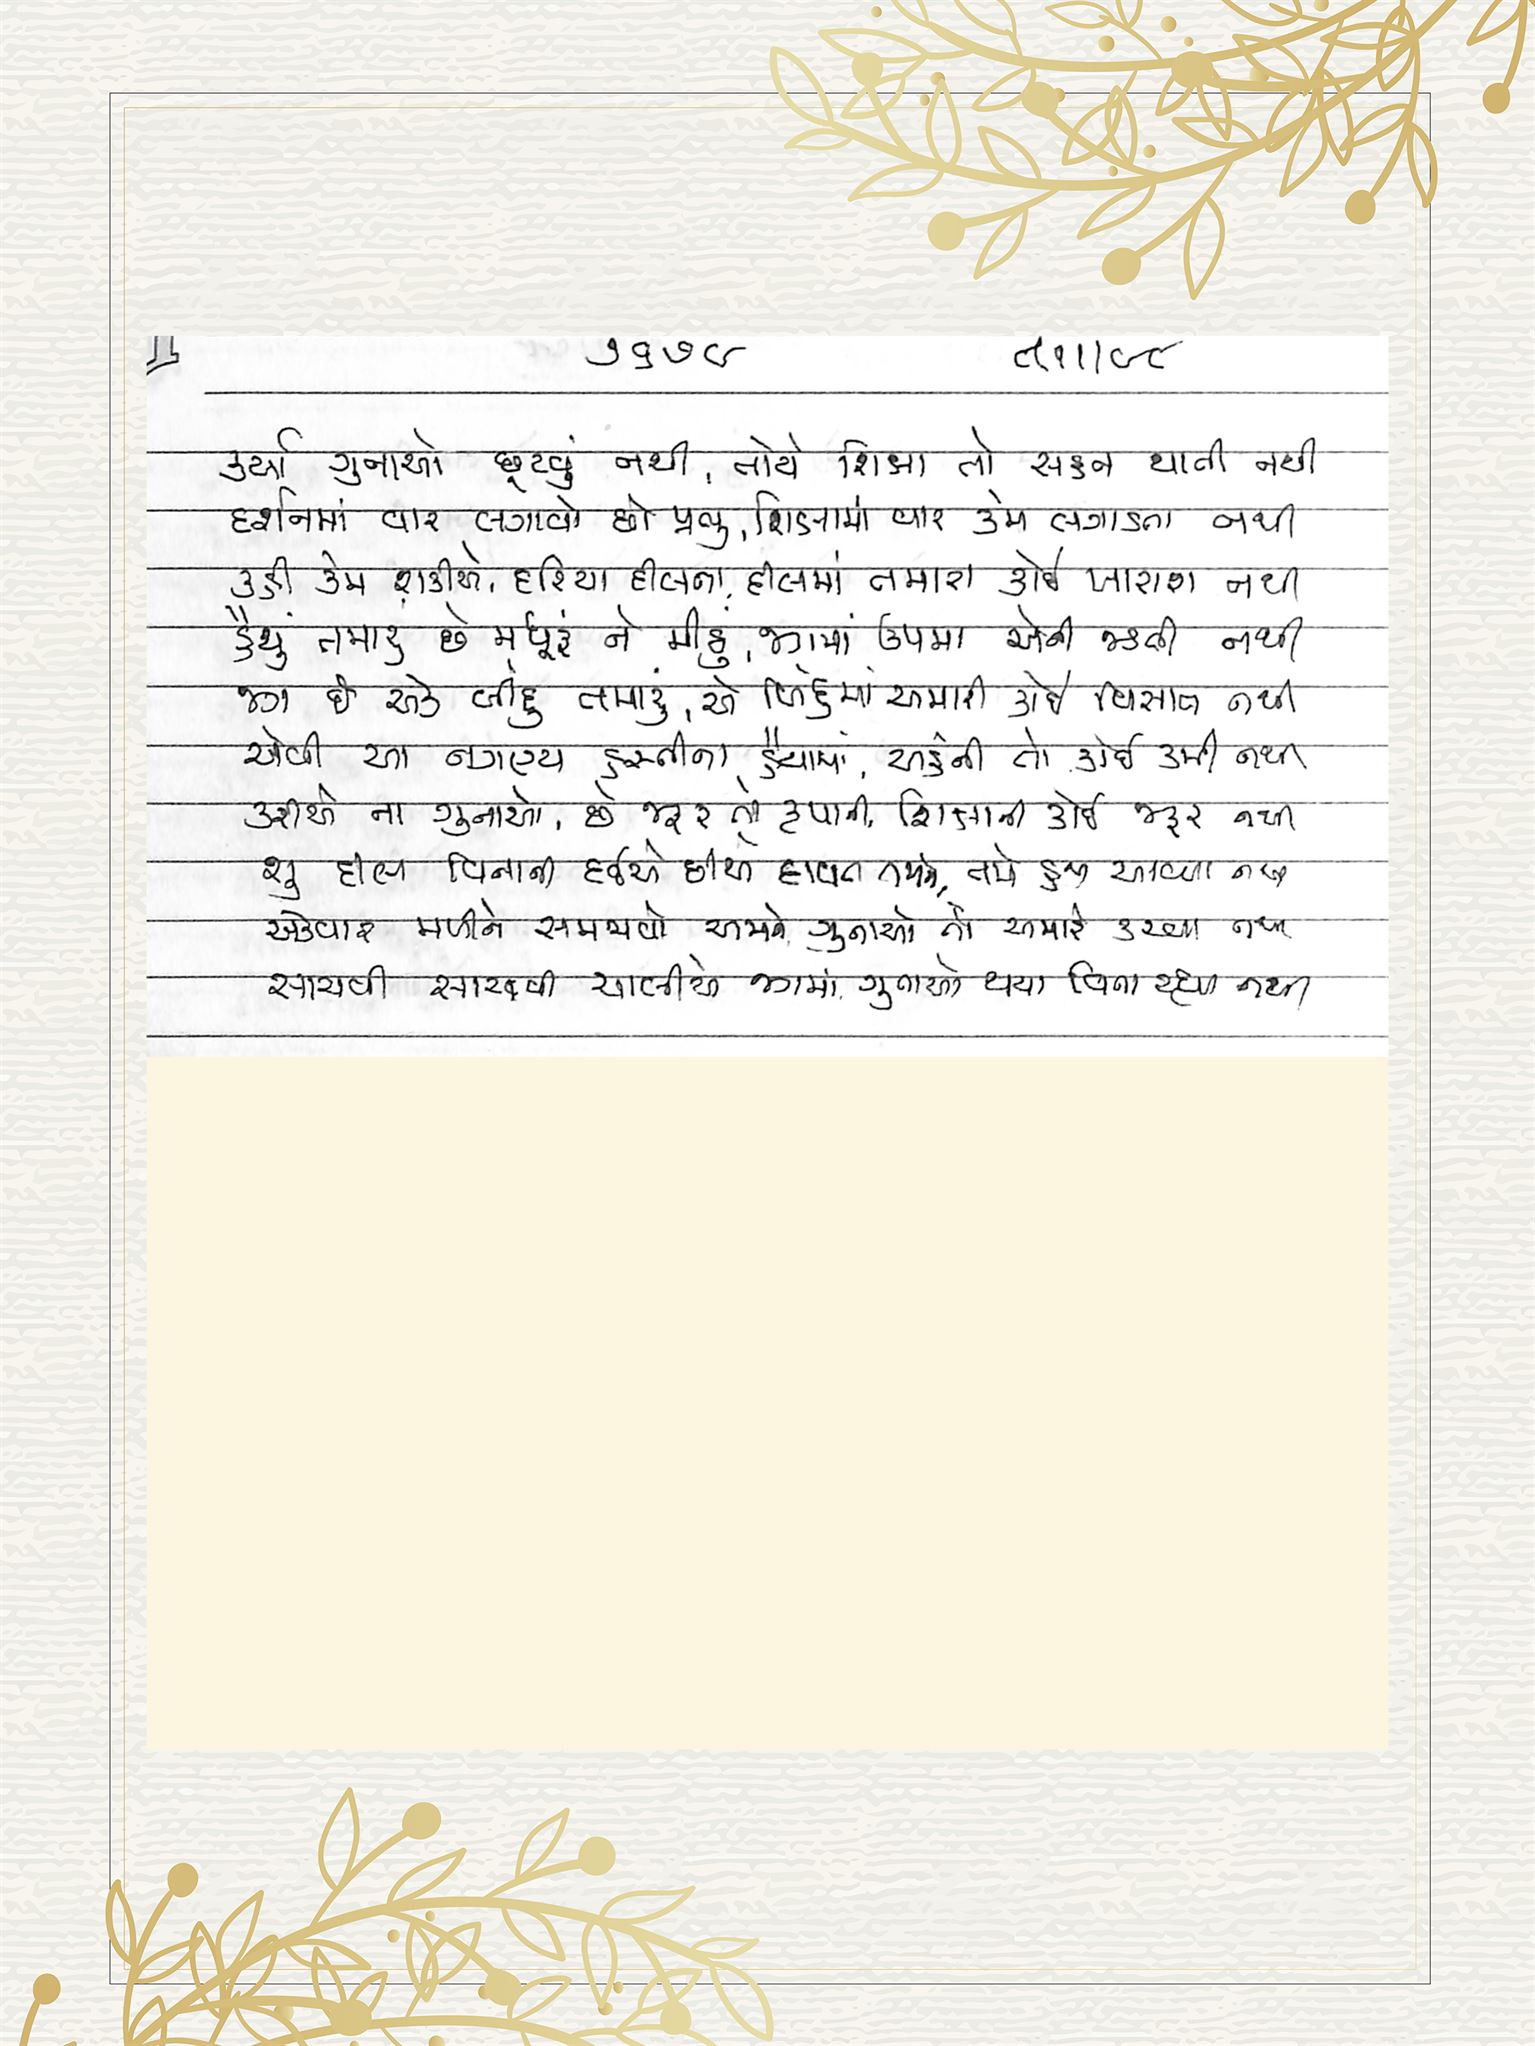 ૭૬૭૮ તા૧૧/૯૮
કર્યા ગુનાઓ છૂટવું નથી, તોયે શિક્ષા તો સહન થાતી નથી
દર્શનમાં વાર લગાવો છો પ્રભુ, શિક્ષામાં વાર કેમ લગાડતા નથી
કહી કેમ શકીએ, દરિયા દીલના, દીલમાં તમારા કોઈ ખારાશ નથી
હૈયું તમારું છે મધુરું ને મીઠું, જગમાં ઉપમા એની જડતી નથી
જગ છે એક બીંદુ તમારું, એ બિંદુમાં અમારી કોઈ વિસાત નથી
એવી આ નગણ્ય હસ્તીના હૈયામાં, અહંની તો કોઈ કમી નથી
કરીએ ના ગુનાઓ, છે જરૂર તો કૃપાની, શિક્ષાની કોઈ જરૂર નથી
શું દીલ વિનાની દઈએ છીએ દાવત તમને, તમે હજી આવ્યા નથી
એકવાર મળીને સમજાવો અમને, ગુનાઓ તો અમારે કરવા નથી
સાચવી સાચવી ચાલીએ જગમાં, ગુનાઓ થયા વિના રહ્યા નથી